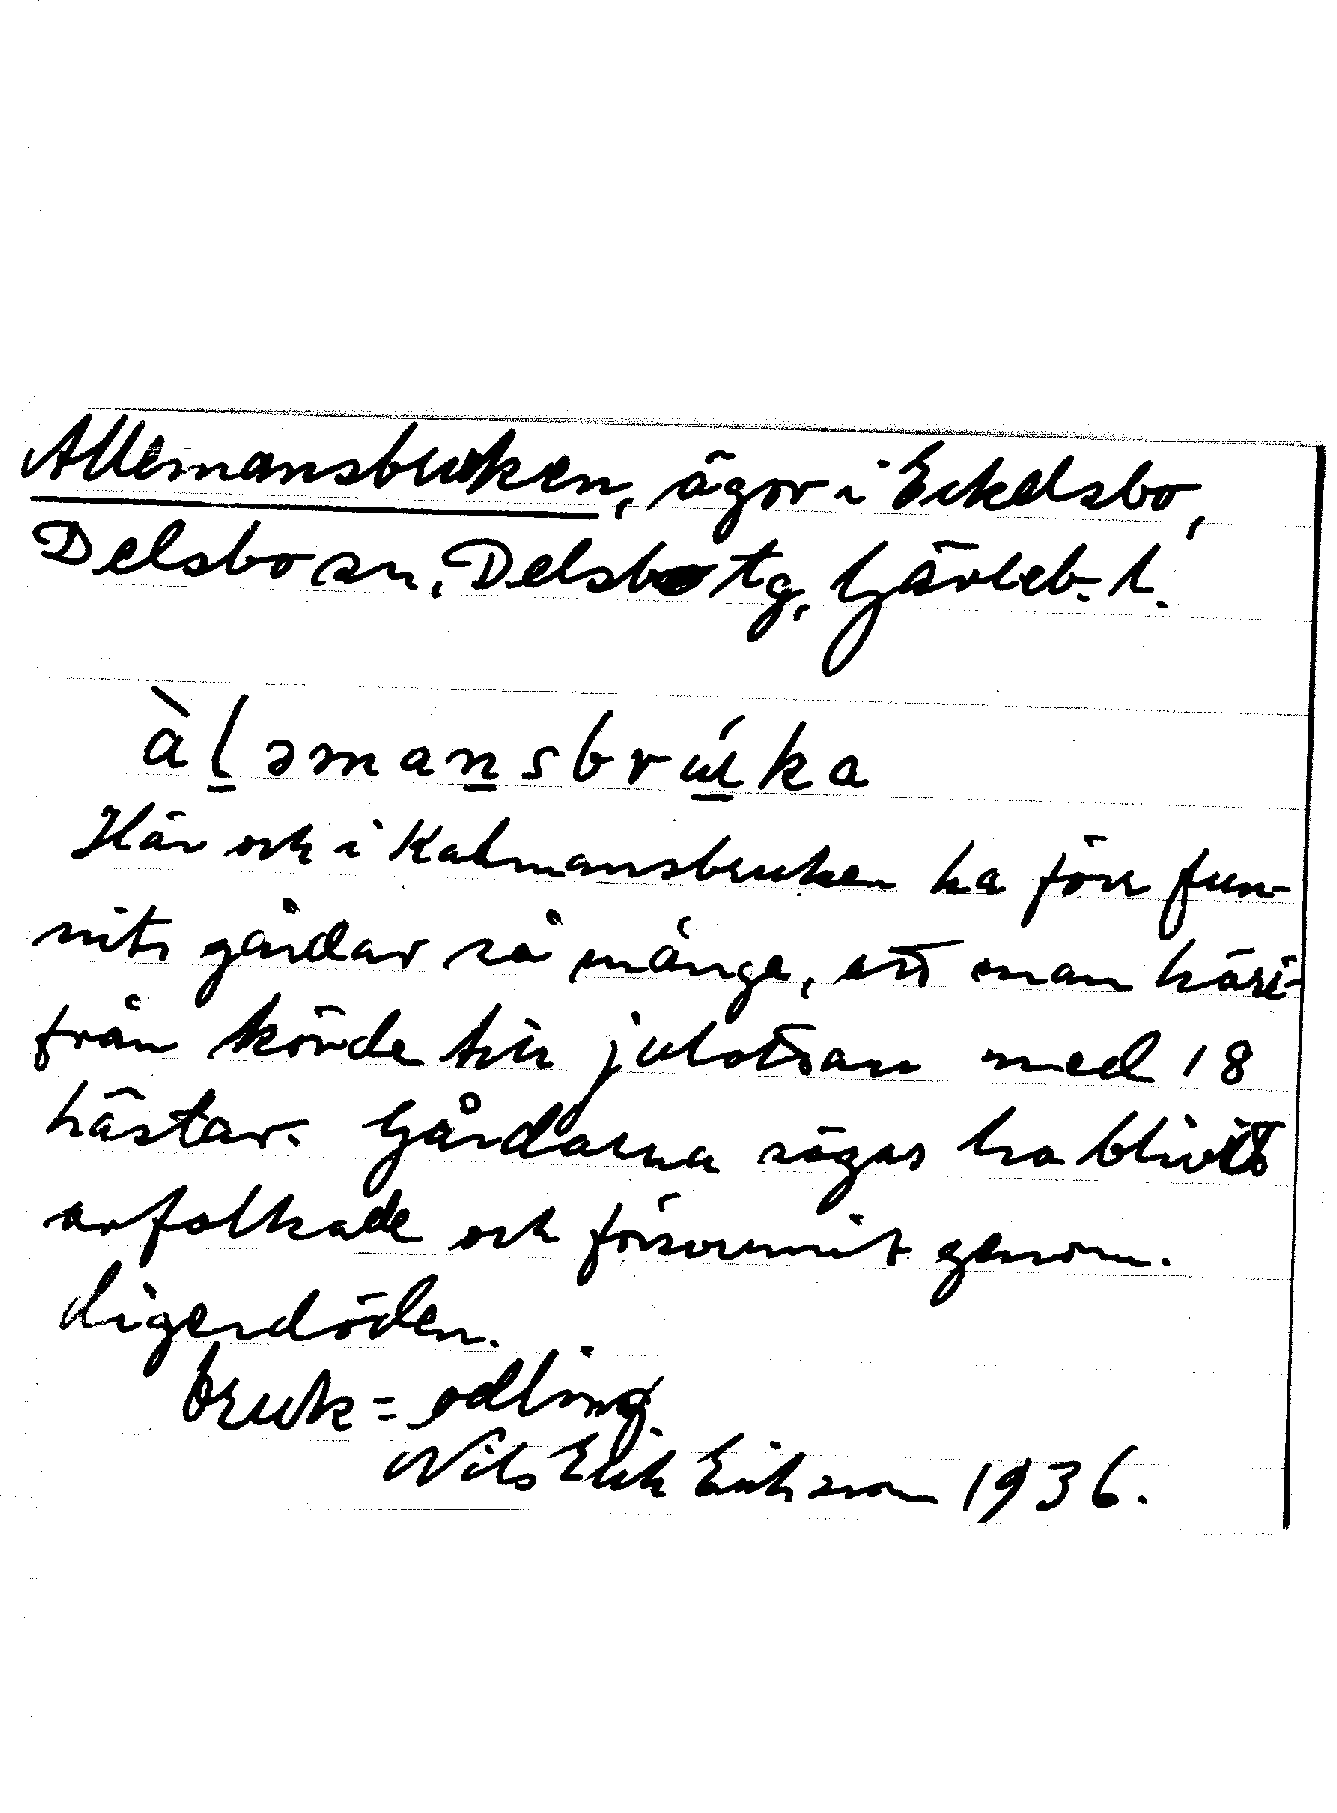 Allemansbruken, ägor i Eckelsbo,
Delsbo sn, Delsbo tg, Gävleb. l.
àl̠əman̠sbrú̠ka
Här och i Kalmansbruken ha förr fun-
nits gårdar så många, att man häri-
från körde till julottan med 18
hästar. Gårdarna sägas ha blivit
avfolkade och försvunnit genom
digerdöden.
bruk = odling
Nils Erik Eriksson 1936.